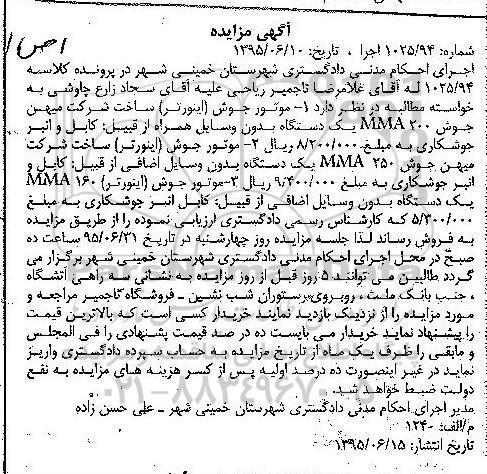 آگهی مزایده
شماره: ۱۰۲۵/۹۴ اجرا ، تاریخ: ۱۳۹۵/۰۶/۱۰
اجرای احکام مدنی دادگستری شهرستان خمینی شهر در پرونده کلاسه
۱۰۲۵/۹۴ له آقای غلامرضا تاجمیر ریاحی علیه آقای سجاد زارع چاوشی به
خواسته مطالبه در نظر دارد ۱- موتور جوش (اینورتر) ساخت شرکت میهن
جوش MMA ۲۰۰ یک دستگاه بدون وسایل همراه از قبیل: کابل و انبر
جوشکاری به مبلغ ۸/۲۰۰/۰۰۰ ریال ۲- موتور جوش (اینورتر) ساخت شرکت
میهن جوش MMA ۲۵۰ یک دستگاه بدون وسایل اضافی از قبیل: کابل و
انبر جوشکاری به مبلغ ۹/۴۰۰/۰۰۰ ریال ۳-موتور جوش (اینورتر) MMA ۱۶۰
یک دستگاه بدون وسایل اضافی از قبیل: کابل انبر جوشکاری به مبلغ
۵/۳۰۰/۰۰۰ که کارشناس رسمی دادگستری ارزیابی نموده را از طریق مزایده
به فروش رساند لذا جلسه مزایده روز چهارشنبه در تاریخ ۹۵/۰۶/۳۱ ساعت ده
صبح در محل اجرای احکام مدنی دادگستری شهرستان خمینی شهر برگزار می
گردد طالبین می توانند ۵ روز قبل از روز مزایده به نشانی سه راهی آتشگاه
، جنب بانک ملت ، روبروی رستوران شب نشین - فروشگاه تاجمیر مراجعه و
مورد مزایده را از نزدیک بازدید نمایند خریدار کسی است که بالاترین قیمت
را پیشنهاد نماید خریدار می بایست ده در صد قیمت پشنهادی را فی المجلس
و مابقی را ظرف یک ماه از تاریخ مزایده به حساب سپرده دادگستری واریز
نماید در غیر اینصورت ده درصد اولیه پس از کسر هزینه های مزایده به نفع
دولت ضبط خواهد شد.
مدیر اجرای احکام مدنی دادگستری شهرستان خمینی شهر - علی حسن زاده
م/الف: ۱۲۴۰
تاریخ انتشار: ۱۳۹۵/۰۶/۱۵
۰۲۱-۸۸۳۴۹۶۷۰-۵